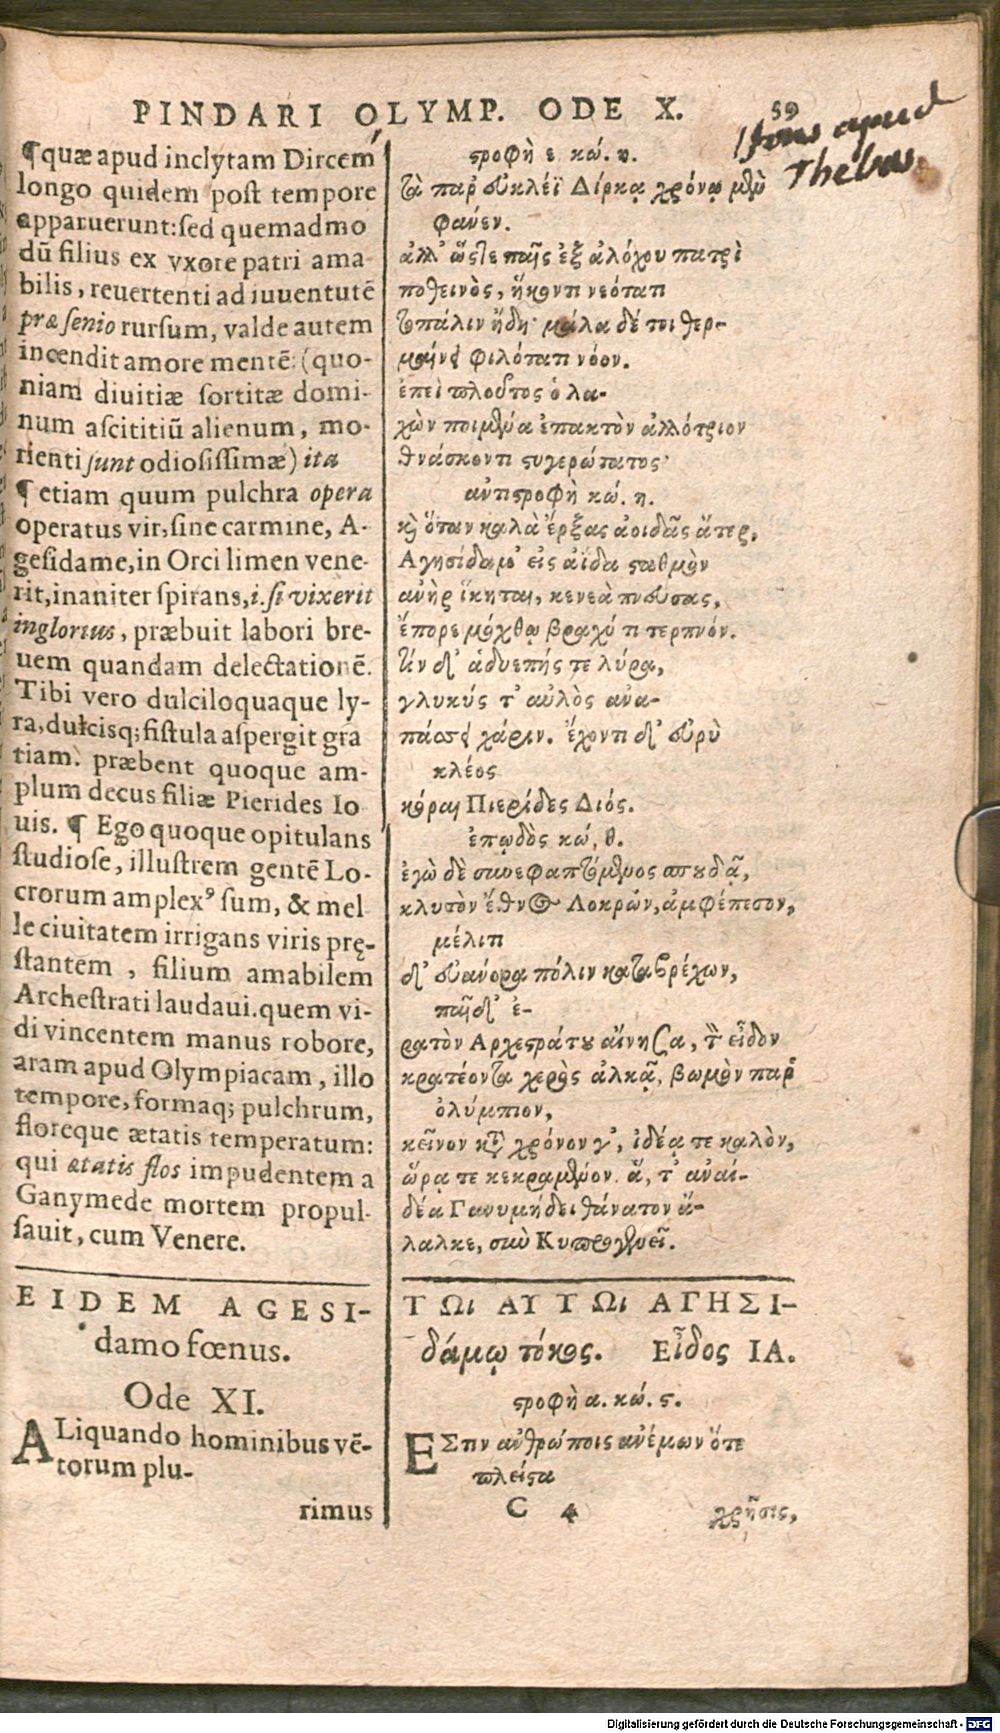 PINDARI OLYMP. ODE X.
59
fons apud
Thebas
¶quæ apud inclytam Dircem
longo quidem post tempore
apparuerunt: sed quemadmo
dū filius ex vxore patri ama
bilis, reuertenti ad iuuentutē
præ senio rursum, valde autem
incendit amore mentē: (quo-
niam diuitiæ sortitæ domi-
num ascititiū alienum, mo-
rienti sunt odiosissimæ) ita
¶ etiam quum pulchra opera
operatus vir, sine carmine, A-
gesidame, in Orci limen vene-
rit, inaniter spirans, i. si vixerit
inglorius, præbuit labori bre-
uem quandam delectationē.
Tibi vero dulciloquaque ly-
ra, dulcisq; fistula aspergit gra
tiam. præbent quoque am-
plum decus filiæ Pierides Io
uis. ¶ Ego quoque opitulans
studiose, illustrem gentē Lo-
crorum amplexꝰ sum, & mel
le ciuitatem irrigans viris prę-
stantem, filium amabilem
Archestrati laudaui. quem vi-
di vincentem manus robore,
aram apud Olympiacam, illo
tempore, formaq; pulchrum,
floreque ætatis temperatum:
qui ætatis flos impudentem a
Ganymede mortem propul-
sauit, cum Venere.
EIDEM AGESI-
damo fœnus.
Ode XI.
ALiquando hominibus vē-
torum plu-
rimus
ϛροφὴ ε. κώ. η.
τὰ παρ' εὐκλέϊ Δίρκᾳ χρόνῳ μὲν
φάνεν.
ἀλλ' ὥςτε παῖς ἐξ ἀλόχου πατρὶ
ποθεινὸς, ἥκοντι νεότατι
τὸ πάλιν ἤδη· μάλα δέ τοι θερ-
μαίνει φιλότατι νόον.
ἐπεὶ πλοῦτος ὁ λα-
χὼν ποιμένα ἐπακτὸν ἀλλότριον
θνάσκοντι ϛυγερώτατος·
ἀντιϛροφὴ κώ. η.
καὶ ὅταν καλὰ ἔρξας ἀοιδᾶς ἄτερ,
Αγησίδαμ' εἰς ἀΐδα ϛαθμὸν
ἀνὴρ ἵκηται, κενεὰ πνεύσας,
ἔπορε μόχθῳ βραχύ τι τερπνόν.
τὶν δ' ἁδυεπής τε λύρα,
γλυκύς τ' αὐλὸς ἀνα-
πάσσει χάριν. ἔχοντι δ' εὐρὺ
κλέος
κόραι Πιερίδες Διός.
ἐπῳδὸς κώ, θ.
ἐγὼ δὲ συνεφαπτόμενος σπουδᾷ,
κλυτὸν ἔθνος Λοκρῶν, ἀμφέπεσον,
μέλιτι
δ' εὐάνορα πόλιν καταβρέχων,
παῖδ' ἐ-
ρατὸν Αρχεϛράτου αἴνησα, τὸν εἶδον
κρατέοντα χερὸς ἀλκᾷ, βωμὸν παρ'
ὀλύμπιον,
κεῖνον κατὰ χρόνον γ', ἰδέᾳ τε καλὸν,
ὥρα τε κεκραμένον. ἅ, τ' ἀναι-
δέα Γανυμήδει θάνατον ἄ-
λαλκε, σὺν Κυπρογενεῖ.
ΤΩι ΑΥΤΩι ΑΓΗΣΙ-
δάμῳ τόκος. Εἶδος ΙΑ.
ϛροφὴ α. κώ. ϛ.
ΕΣτιν ἀνθρώποις ἀνέμων ὅτε
πλείϛα
C 4
χρῆσις,